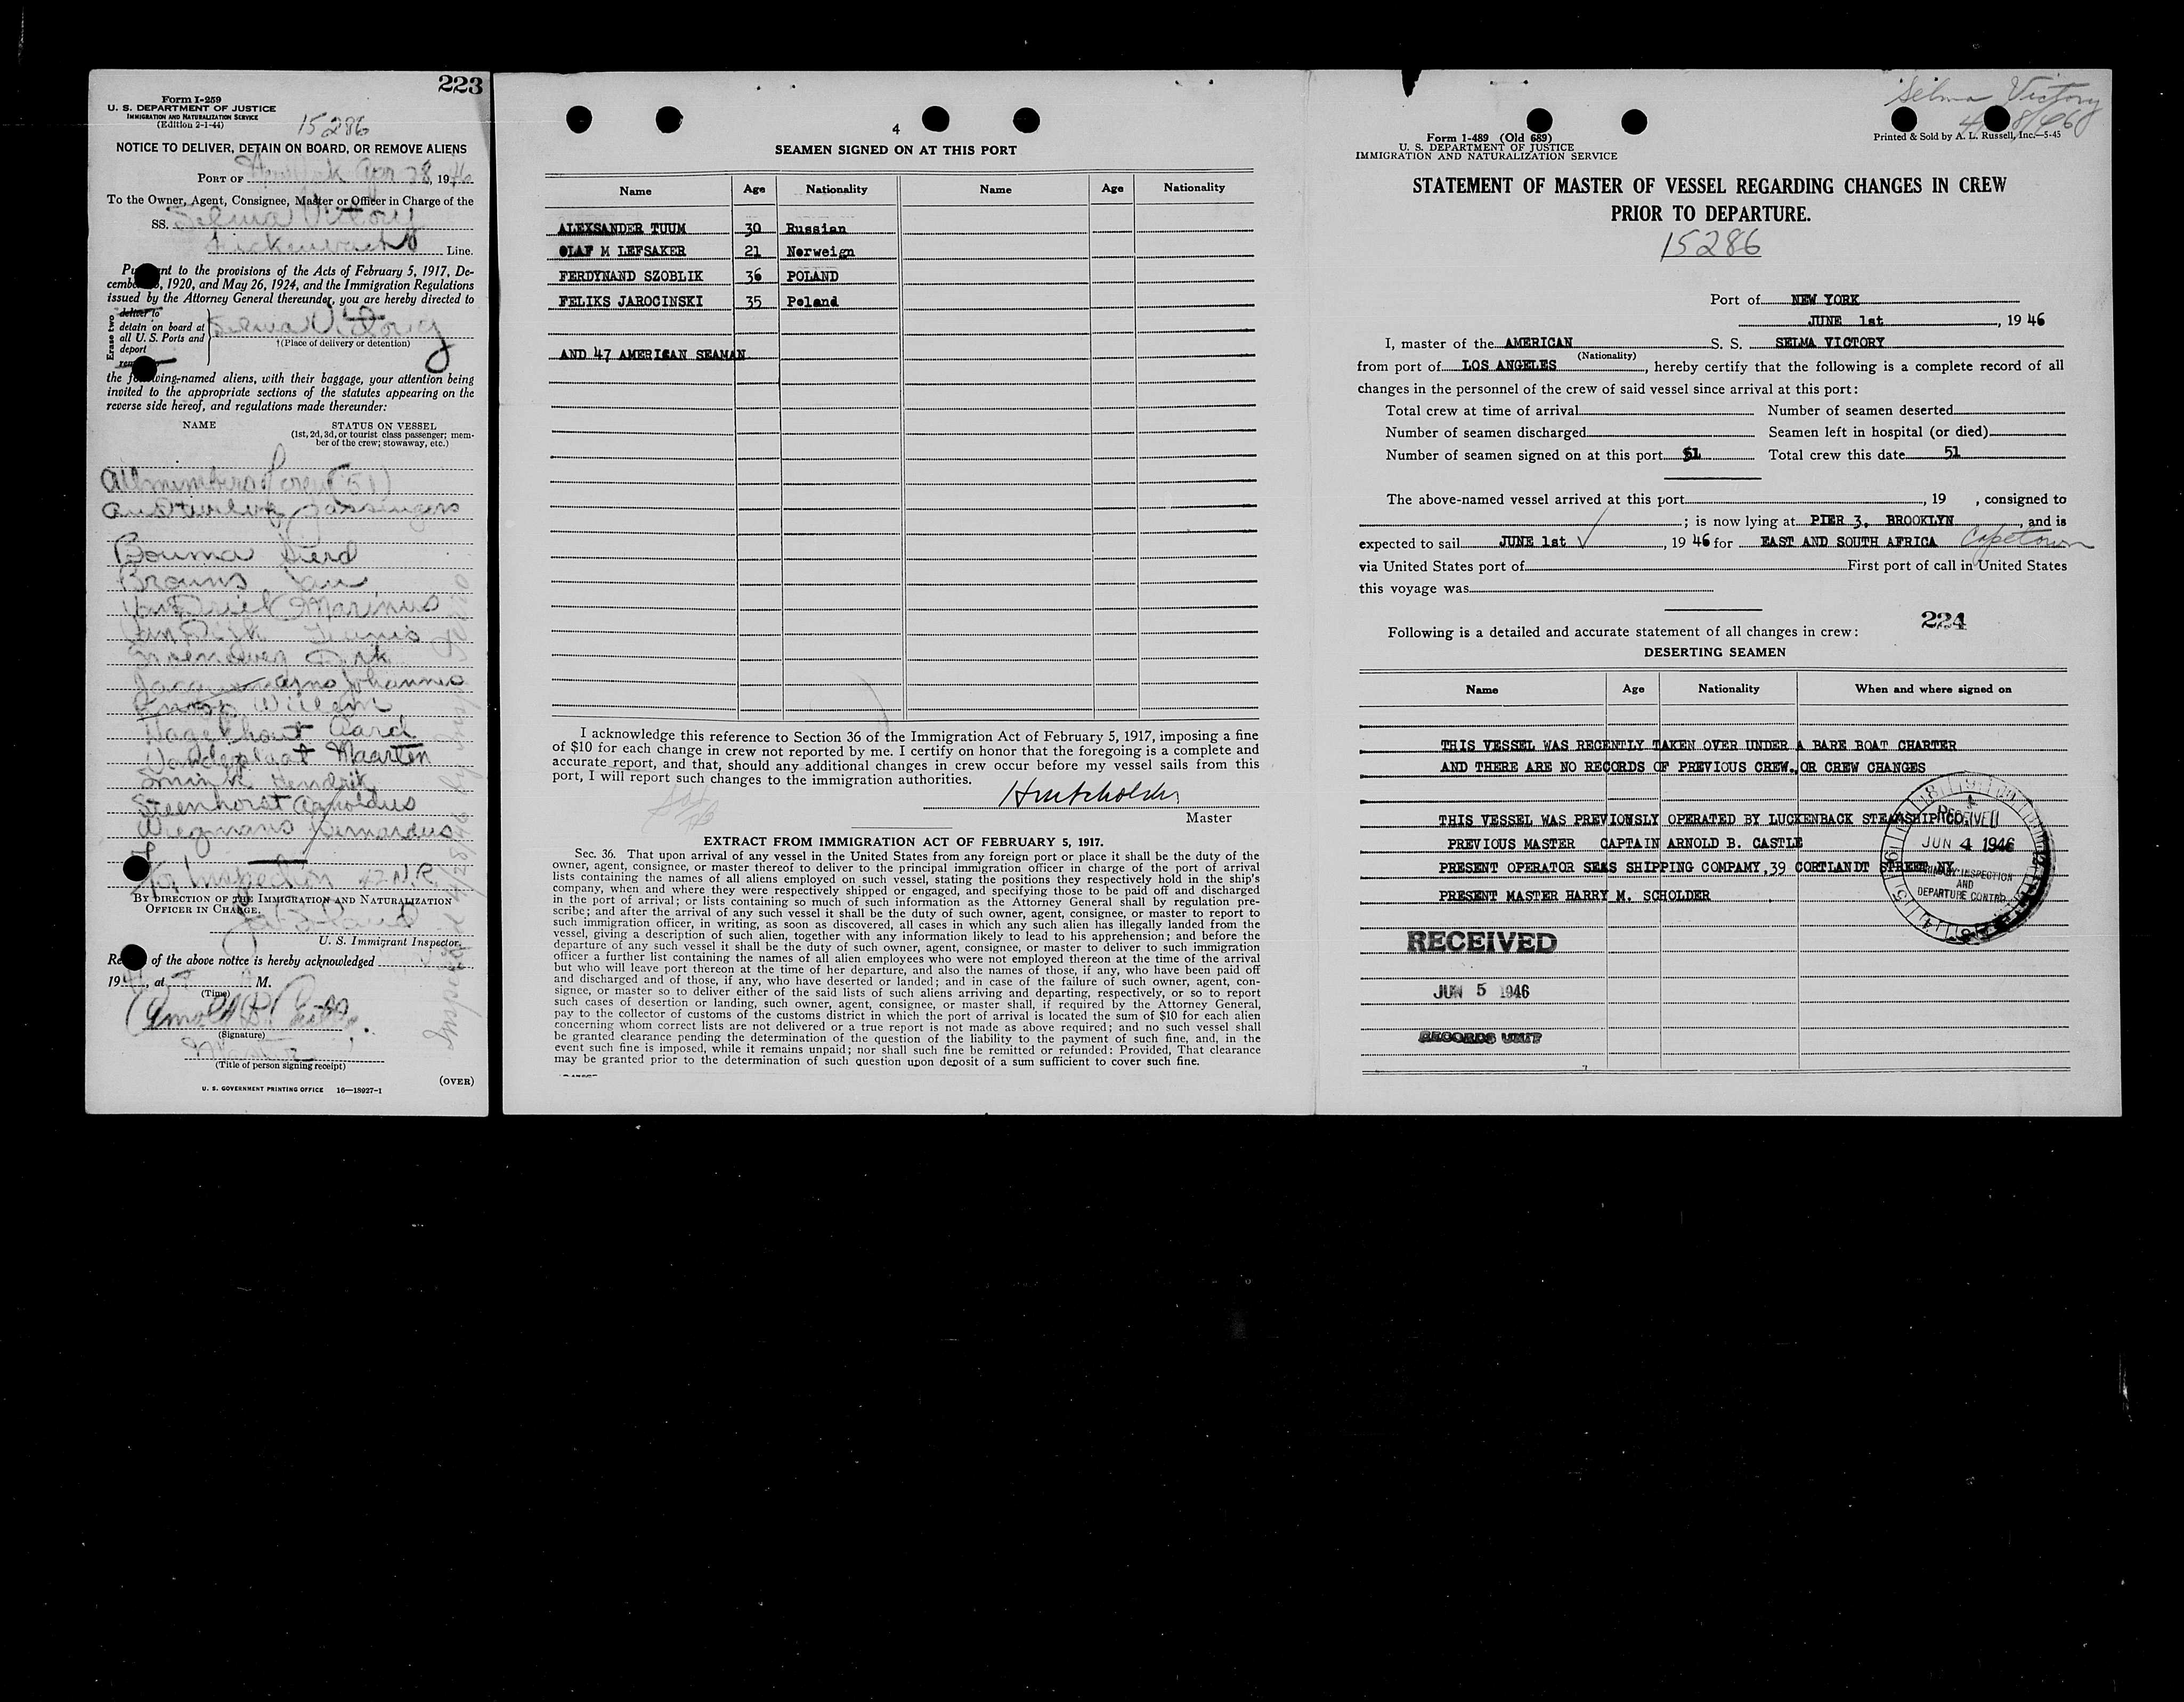 223
Form I-259
U. S. DEPARTMENT OF JUSTICE
IMMIGRATION AND NATURALIZATION SERVICE
(Edition 2-1-44)
15286
NOTICE TO DELIVER, DETAIN ON BOARD, OR REMOVE ALIENS
PORT OF New York Apr 28, 1946
To the Owner, Agent, Consignee, Master or Officer in Charge of the
SS. Selma Victory
Line.
nt to the provisions of the Acts of February 5, 1917, De-
cemb , 1920, and May 26, 1924, and the Immigration Regulations
issued by the Attorney General thereunder, you are hereby directed to
Erase two
deliver to
detain on board at
all U. S. Ports and
deport
Selma Victory
†(Place of delivery or detention)
the following-named aliens, with their baggage, your attention being
invited to the appropriate sections of the statutes appearing on the
reverse side hereof, and regulations made thereunder:
NAME STATUS ON VESSEL
(1st, 2d, 3d, or tourist class passenger; mem-
ber of the crew; stowaway, etc.)
All members of crew (51)
and twelve passengers
Bouma Sierd
Brouns Jan
Van Driel Marinus
Van Dijk Teunis
Groeneweg Dirk
Johannes
Willem
Hagelhout Aard
Maarten
Smink Hendrik
Steenhorst Arnoldus
Wiegmans Bernardus
For Inspection 42 N.R.
BY DIRECTION OF THE IMMIGRATION AND NATURALIZATION
OFFICER IN CHARGE.
U. S. Immigrant Inspector.
Re of the above notice is hereby acknowledged
19 , at M.
(Time)
Arnold B. Castle
(Signature)
Master
(Title of person signing receipt)
(OVER)
U. S. GOVERNMENT PRINTING OFFICE 16—18927-1
4
SEAMEN SIGNED ON AT THIS PORT
Name Age Nationality Name Age Nationality
ALEXSANDER TUUM 30 Russian
OLAF M LEFSAKER 21 Norweign
FERDYNAND SZOBLIK 36 POLAND
FELIKS JAROCINSKI 35 Poland
AND 47 AMERICAN SEAMAN
I acknowledge this reference to Section 36 of the Immigration Act of February 5, 1917, imposing a fine
of $10 for each change in crew not reported by me. I certify on honor that the foregoing is a complete and
accurate report, and that, should any additional changes in crew occur before my vessel sails from this
port, I will report such changes to the immigration authorities.
Master
EXTRACT FROM IMMIGRATION ACT OF FEBRUARY 5, 1917.
Sec. 36. That upon arrival of any vessel in the United States from any foreign port or place it shall be the duty of the
owner, agent, consignee, or master thereof to deliver to the principal immigration officer in charge of the port of arrival
lists containing the names of all aliens employed on such vessel, stating the positions they respectively hold in the ship's
company, when and where they were respectively shipped or engaged, and specifying those to be paid off and discharged
in the port of arrival; or lists containing so much of such information as the Attorney General shall by regulation pre-
scribe; and after the arrival of any such vessel it shall be the duty of such owner, agent, consignee, or master to report to
such immigration officer, in writing, as soon as discovered, all cases in which any such alien has illegally landed from the
vessel, giving a description of such alien, together with any information likely to lead to his apprehension; and before the
departure of any such vessel it shall be the duty of such owner, agent, consignee, or master to deliver to such immigration
officer a further list containing the names of all alien employees who were not employed thereon at the time of the arrival
but who will leave port thereon at the time of her departure, and also the names of those, if any, who have been paid off
and discharged and of those, if any, who have deserted or landed; and in case of the failure of such owner, agent, con-
signee, or master so to deliver either of the said lists of such aliens arriving and departing, respectively, or so to report
such cases of desertion or landing, such owner, agent, consignee, or master shall, if required by the Attorney General,
pay to the collector of customs of the customs district in which the port of arrival is located the sum of $10 for each alien
concerning whom correct lists are not delivered or a true report is not made as above required; and no such vessel shall
be granted clearance pending the determination of the question of the liability to the payment of such fine, and, in the
event such fine is imposed, while it remains unpaid; nor shall such fine be remitted or refunded: Provided, That clearance
may be granted prior to the determination of such question upon deposit of a sum sufficient to cover such fine.
Selma Victory
Form I-489 (Old 689)
U. S. DEPARTMENT OF JUSTICE
IMMIGRATION AND NATURALIZATION SERVICE
Printed & Sold by A. L. Russell, Inc.—5-45
STATEMENT OF MASTER OF VESSEL REGARDING CHANGES IN CREW
PRIOR TO DEPARTURE.
15286
Port of NEW YORK
JUNE 1st, 1946
I, master of the AMERICAN S. S. SELMA VICTORY
(Nationality)
from port of LOS ANGELES, hereby certify that the following is a complete record of all
changes in the personnel of the crew of said vessel since arrival at this port:
Total crew at time of arrival Number of seamen deserted
Number of seamen discharged Seamen left in hospital (or died)
Number of seamen signed on at this port 51 Total crew this date 51
The above-named vessel arrived at this port , 19 , consigned to
; is now lying at PIER 3, BROOKLYN, and is
expected to sail JUNE 1st ✓, 1946 for EAST AND SOUTH AFRICA Capetown
via United States port of First port of call in United States
this voyage was
224
Following is a detailed and accurate statement of all changes in crew:
DESERTING SEAMEN
Name Age Nationality When and where signed on
THIS VESSEL WAS RECENTLY TAKEN OVER UNDER A BARE BOAT CHARTER
AND THERE ARE NO RECORDS OF PREVIOUS CREW, OR CREW CHANGES
THIS VESSEL WAS PREVIOUSLY OPERATED BY LUCKENBACK STEAMSHIP CO.
PREVIOUS MASTER CAPTAIN ARNOLD B. CASTLE
PRESENT OPERATOR SEAS SHIPPING COMPAMY, 39 CORTLANDT STREET NY
PRESENT MASTER HARRY M. SCHOLDER
RECEIVED
JUN 4 1946
INSPECTION
AND
DEPARTURE CONTROL
RECEIVED
JUN 5 1946
RECORDS UNIT